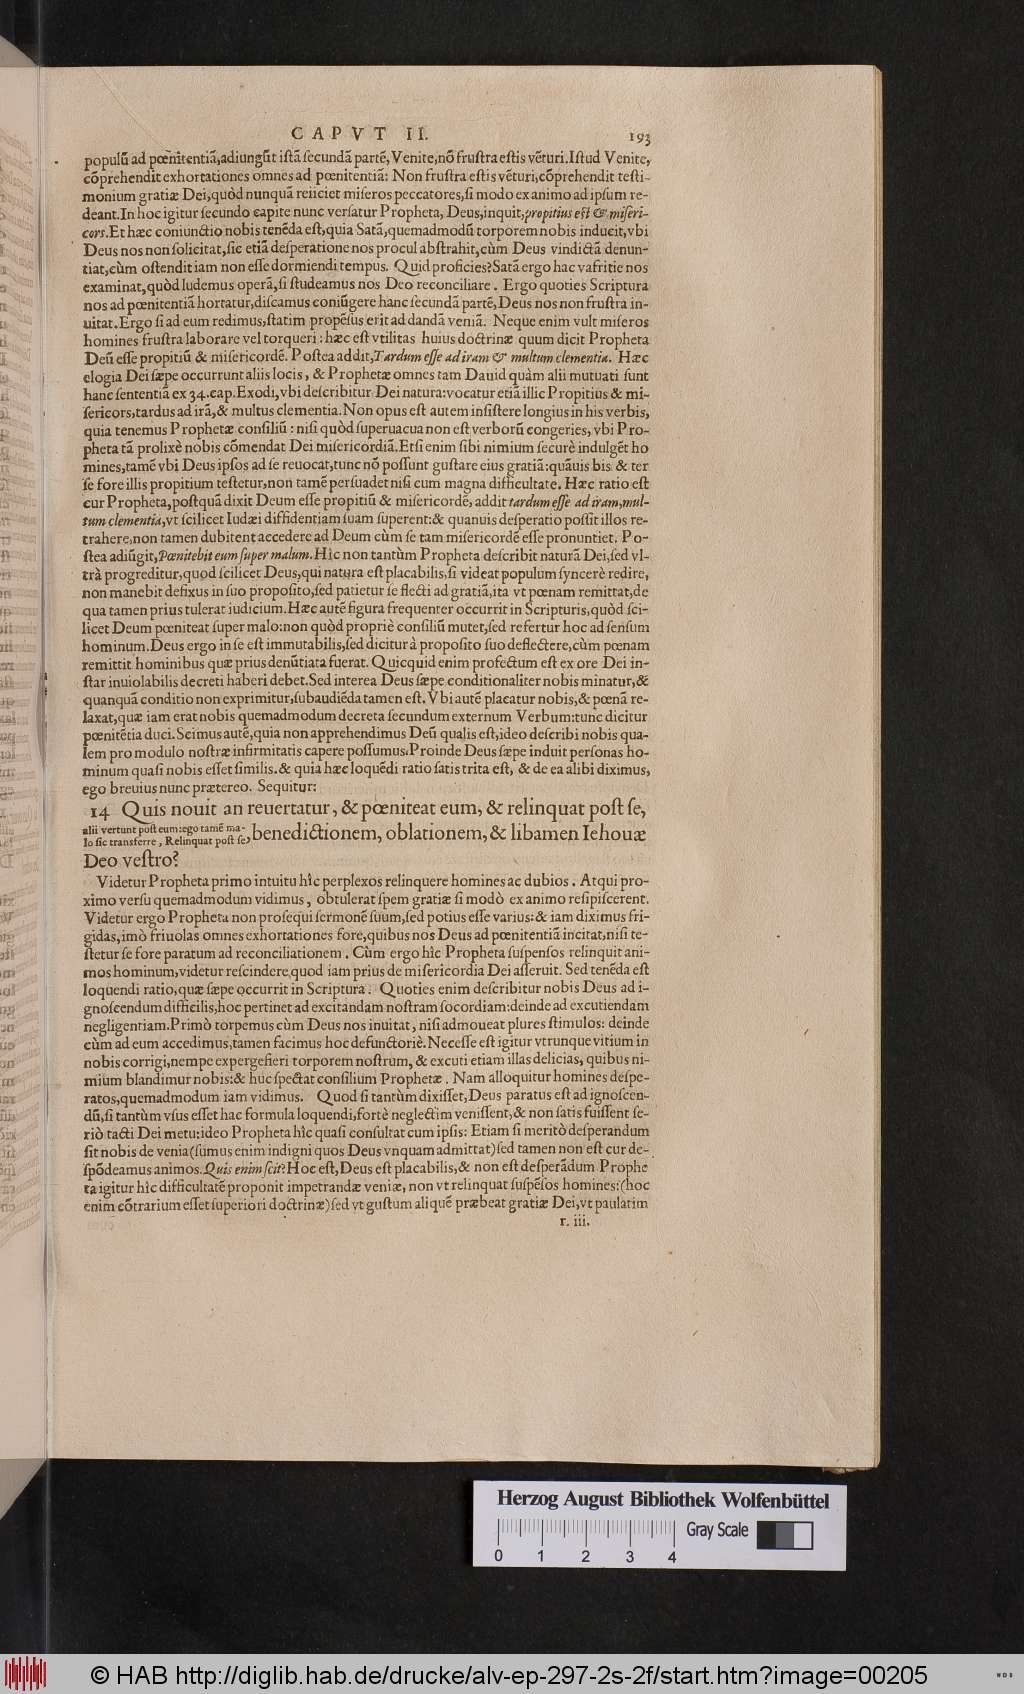 CAPVT II. 193
populū ad pœnitentiā,adiungūt iſtā ſecundā partē, Venite,nō fruſtra eſtis vēturi.Iſtud Venite,
cōprehendit exhortationes omnes ad pœnitentiā: Non fruſtra eſtis vēturi,cōprehendit teſti-
monium gratiæ Dei,quòd nunquā reiiciet miſeros peccatores,ſi modo ex animo ad ipſum re-
deant.In hoc igitur ſecundo capite nunc verſatur Propheta, Deus,inquit,propitius eſt & miſeri-
cors.Et hæc coniunctio nobis tenēda eſt,quia Satā,quemadmodū torporem nobis inducit,vbi
Deus nos non ſolicitat,ſic etiā deſperatione nos procul abſtrahit,cùm Deus vindictā denun-
tiat,cùm oſtendit iam non eſſe dormiendi tempus. Quid proficies?Satā ergo hac vafritie nos
examinat,quòd ludemus operā,ſi ſtudeamus nos Deo reconciliare. Ergo quoties Scriptura
nos ad pœnitentiā hortatur,diſcamus coniūgere hanc ſecundā partē,Deus nos non fruſtra in-
uitat.Ergo ſi ad eum redimus,ſtatim propēſus erit ad dandā veniā. Neque enim vult miſeros
homines fruſtra laborare vel torqueri : hæc eſt vtilitas huius doctrinæ quum dicit Propheta
Deū eſſe propitiū & miſericordē. Poſtea addit,Tardum eſſe ad iram & multum clementia. Hæc
elogia Dei ſæpe occurrunt aliis locis, & Prophetæ omnes tam Dauid quàm alii mutuati ſunt
hanc ſententiā ex 34.cap.Exodi,vbi deſcribitur Dei natura:vocatur etiā illic Propitius & mi-
ſericors,tardus ad irā,& multus clementia.Non opus eſt autem inſiſtere longius in his verbis,
quia tenemus Prophetæ conſiliū : niſi quòd ſuperuacua non eſt verborū congeries, vbi Pro-
pheta tā prolixè nobis cōmendat Dei miſericordiā.Etſi enim ſibi nimium ſecurè indulgēt ho
mines,tamē vbi Deus ipſos ad ſe reuocat,tunc nō poſſunt guſtare eius gratiā:quāuis bis & ter
ſe fore illis propitium teſtetur,non tamē perſuadet niſi cum magna difficultate. Hæc ratio eſt
cur Propheta,poſtquā dixit Deum eſſe propitiū & miſericordē,addit tardum eſſe ad iram,mul-
tum clementia,vt ſcilicet Iudæi diffidentiam ſuam ſuperent:& quanuis deſperatio poſſit illos re-
trahere,non tamen dubitent accedere ad Deum cùm ſe tam miſericordē eſſe pronuntiet. Po-
ſtea adiūgit,Pœnitebit eum ſuper malum.Hîc non tantùm Propheta deſcribit naturā Dei,ſed vl-
trà progreditur,quod ſcilicet Deus,qui natura eſt placabilis,ſi videat populum ſyncerè redire,
non manebit defixus in ſuo propoſito,ſed patietur ſe flecti ad gratiā,ita vt pœnam remittat,de
qua tamen prius tulerat iudicium.Hæc autē figura frequenter occurrit in Scripturis,quòd ſci-
licet Deum pœniteat ſuper malo:non quòd propriè conſiliū mutet,ſed refertur hoc ad ſenſum
hominum.Deus ergo in ſe eſt immutabilis,ſed dicitur à propoſito ſuo deflectere,cùm pœnam
remittit hominibus quæ prius denūtiata fuerat. Quicquid enim profectum eſt ex ore Dei in-
ſtar inuiolabilis decreti haberi debet.Sed interea Deus ſæpe conditionaliter nobis minatur,&
quanquā conditio non exprimitur,ſubaudiēda tamen eſt. Vbi autē placatur nobis,& pœnā re-
laxat,quæ iam erat nobis quemadmodum decreta ſecundum externum Verbum:tunc dicitur
pœnitētia duci.Scimus autē,quia non apprehendimus Deū qualis eſt,ideo deſcribi nobis qua-
lem pro modulo noſtræ infirmitatis capere poſſumus.Proinde Deus ſæpe induit perſonas ho-
minum quaſi nobis eſſet ſimilis.& quia hæc loquēdi ratio ſatis trita eſt, & de ea alibi diximus,
ego breuius nunc prætereo. Sequitur:
14 Quis nouit an reuertatur, & pœniteat eum, & relinquat poſt ſe,
alii vertunt poſt eum:ego tamē ma-
lo ſic transferre, Relinquat poſt ſe, benedictionem, oblationem, & libamen Iehouæ
Deo veſtro?
Videtur Propheta primo intuitu hîc perplexos relinquere homines ac dubios. Atqui pro-
ximo verſu quemadmodum vidimus, obtulerat ſpem gratiæ ſi modò ex animo reſipiſcerent.
Videtur ergo Propheta non proſequi ſermonē ſuum,ſed potius eſſe varius:& iam diximus fri-
gidas,imò friuolas omnes exhortationes fore,quibus nos Deus ad pœnitentiā incitat,niſi te-
ſtetur ſe fore paratum ad reconciliationem. Cùm ergo hîc Propheta ſuſpenſos relinquit ani-
mos hominum,videtur reſcindere,quod iam prius de miſericordia Dei aſſeruit. Sed tenēda eſt
loquendi ratio,quæ ſæpe occurrit in Scriptura. Quoties enim deſcribitur nobis Deus ad i-
gnoſcendum difficilis,hoc pertinet ad excitandam noſtram ſocordiam:deinde ad excutiendam
negligentiam.Primò torpemus cùm Deus nos inuitat, niſi admoueat plures ſtimulos: deinde
cùm ad eum accedimus,tamen facimus hoc defunctoriè.Neceſſe eſt igitur vtrunque vitium in
nobis corrigi,nempe expergefieri torporem noſtrum, & excuti etiam illas delicias, quibus ni-
mium blandimur nobis:& huc ſpectat conſilium Prophetæ. Nam alloquitur homines deſpe-
ratos,quemadmodum iam vidimus. Quod ſi tantùm dixiſſet,Deus paratus eſt ad ignoſcen-
dū,ſi tantùm vſus eſſet hac formula loquendi,fortè neglectim veniſſent,& non ſatis fuiſſent ſe-
riò tacti Dei metu:ideo Propheta hîc quaſi conſultat cum ipſis: Etiam ſi meritò deſperandum
ſit nobis de venia(ſumus enim indigni quos Deus vnquam admittat)ſed tamen non eſt cur de-
ſpōdeamus animos.Quis enim ſcit?Hoc eſt,Deus eſt placabilis,& non eſt deſperādum Prophe
ta igitur hîc difficultatē proponit impetrandæ veniæ, non vt relinquat ſuſpēſos homines:(hoc
enim cōtrarium eſſet ſuperiori doctrinæ)ſed vt guſtum aliquē præbeat gratiæ Dei,vt paulatim
r. iii.
Herzog August Bibliothek Wolfenbüttel
Gray Scale
0 1 2 3 4
© HAB http://diglib.hab.de/drucke/alv-ep-297-2s-2f/start.htm?image=00205